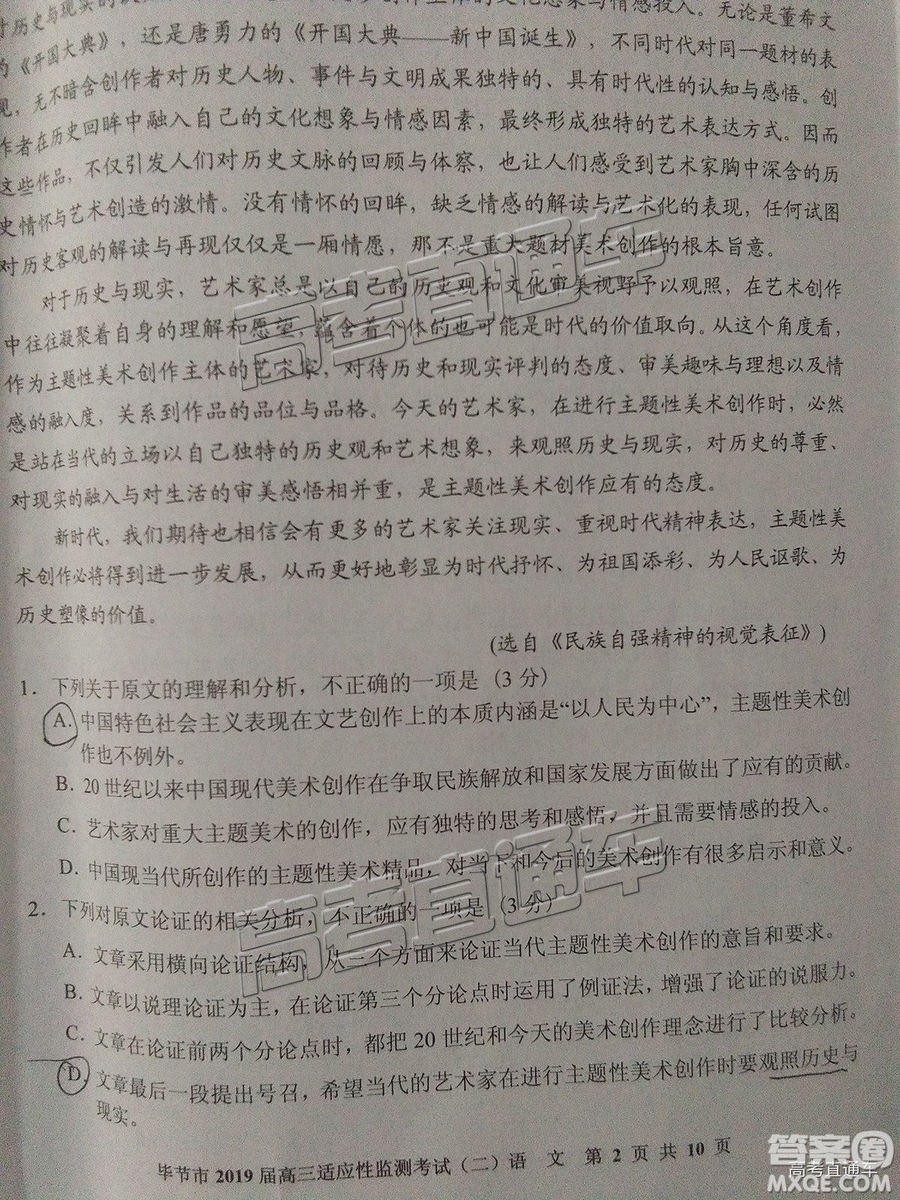 创作者对历史人物、事件与文明成果独特的、具有时代性的认知与感悟。创
为《开国大典》，还是唐勇力的《开国大典——新中国诞生》，不同时代对同一题材的表
现，无不暗含创作者对历史人物、事件与文明成果独特的、具有时代性的认知与感悟。创
作者在历史回眸中融入自己的文化想象与情感因素，最终形成独特的艺术表达方式。因而
这些作品，不仅引发人们对历史文脉的回顾与体察，也让人们感受到艺术家胸中深含的历
史情怀与艺术创造的激情。没有情怀的回眸，缺乏情感的解读与艺术化的表现，任何试图
对历史客观的解读与再现仅仅是一厢情愿，那不是重大题材美术创作的根本旨意。
对于历史与现实，艺术家总是以自己的历史观和文化审美视野予以观照，在艺术创作
中往往凝聚着自身的理解和愿望，蕴含着个体的也可能是时代的价值取向。从这个角度看，
作为主题性美术创作主体的艺术家，对待历史和现实评判的态度、审美趣味与理想以及情
感的融入度，关系到作品的品位与品格。今天的艺术家，在进行主题性美术创作时，必然
是站在当代的立场以自己独特的历史观和艺术想象，来观照历史与现实，对历史的尊重、
对现实的融入与对生活的审美感悟相并重，是主题性美术创作应有的态度。
新时代，我们期待也相信会有更多的艺术家关注现实、重视时代精神表达，主题性美
术创作必将得到进一步发展，从而更好地彰显为时代抒怀、为祖国添彩、为人民讴歌、为
历史塑像的价值。
(选自《民族自强精神的视觉表征》)
1．下列关于原文的理解和分析，不正确的一项是（3 分）
A．中国特色社会主义表现在文艺创作上的本质内涵是“以人民为中心”，主题性美术创
作也不例外。
B．20 世纪以来中国现代美术创作在争取民族解放和国家发展方面做出了应有的贡献。
C．艺术家对重大主题美术的创作，应有独特的思考和感悟，并且需要情感的投入。
D．中国现当代所创作的主题性美术精品，对当下和今后的美术创作有很多启示和意义。
2．下列对原文论证的相关分析，不正确的一项是（3 分）
A．文章采用横向论证结构，从三个方面来论证当代主题性美术创作的意旨和要求。
B．文章以说理论证为主，在论证第三个分论点时运用了例证法，增强了论证的说服力。
C．文章在论证前两个分论点时，都把 20 世纪和今天的美术创作理念进行了比较分析。
D．文章最后一段提出号召，希望当代的艺术家在进行主题性美术创作时要观照历史与
现实。
毕节市 2019 届高三适应性监测考试（二）语 文 第 2 页 共 10 页
高考直通车
高考直通车
答案圈
高考直通车
MXQE.COM